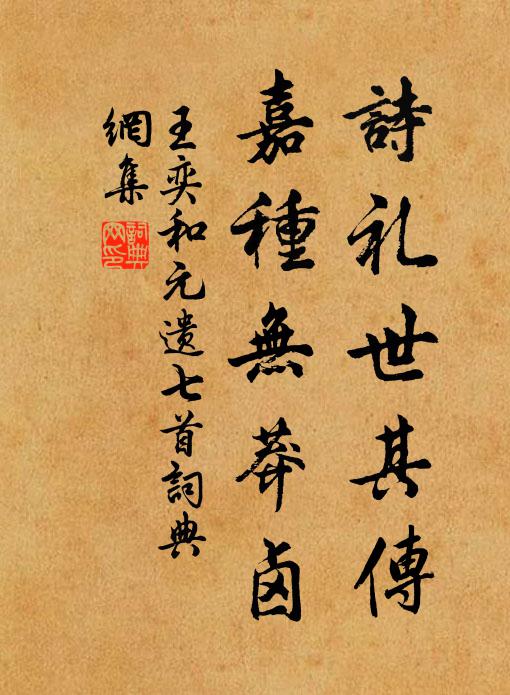 詩礼世其傳
嘉種無莽鹵
王奕和元遗七首詞典
網集
詞典網印